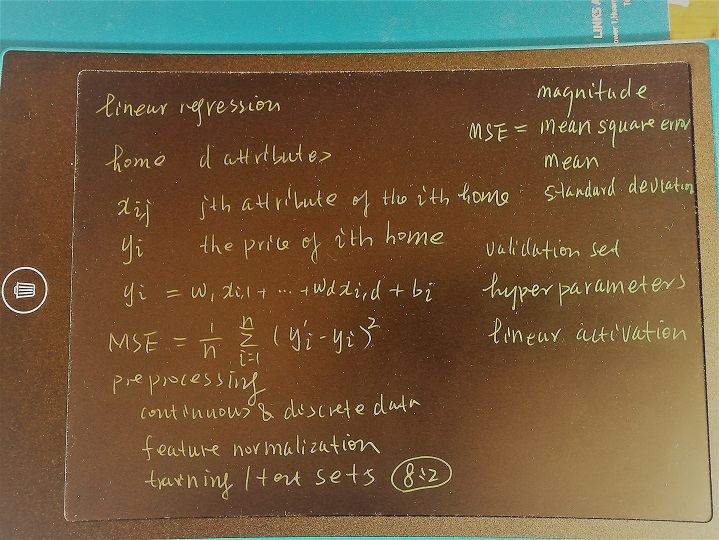 LINKS A
linear regression
home d attributes
xij jth attribute of the ith home
yi the price of ith home
yi = w1 xi,1 + ... + wd xi,d + bi
MSE = 1/n Σ i=1 n (y'i - yi)²
preprocessing
continuous & discrete data
feature normalization
training / test sets 8:2
magnitude
MSE = mean square error
mean
standard deviation
validation set
hyperparameters
linear activation